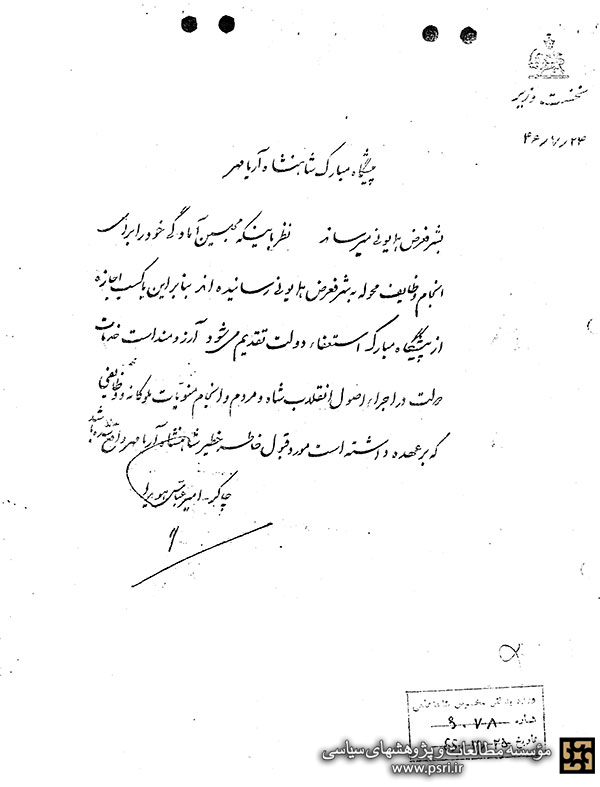 نخست وزیر
۴۶/۷/۲۳
پیشگاه مبارک شاهنشاه آریامهر
بشرفعرض همایونی میرساند نظر باینکه مجلسین آمادگی خود را برای
انجام وظایف محوله بشرفعرض همایونی رسانیده اند بنابراین با کسب اجازه
از پیشگاه مبارک استعفاء دولت تقدیم می شود آرزومند است خدمات
دولت در اجراء اصول انقلاب شاه و مردم و انجام منویات ملوکانه و وظایفی
که بر عهده داشته است مورد قبول خاطر خطیر شاهنشاه آریامهر واقع شده باشد
چاکر - امیرعباس هویدا
شماره ۶۰۷۸
تاریخ
مؤسسه مطالعات و پژوهشهای سیاسی
www.psri.ir